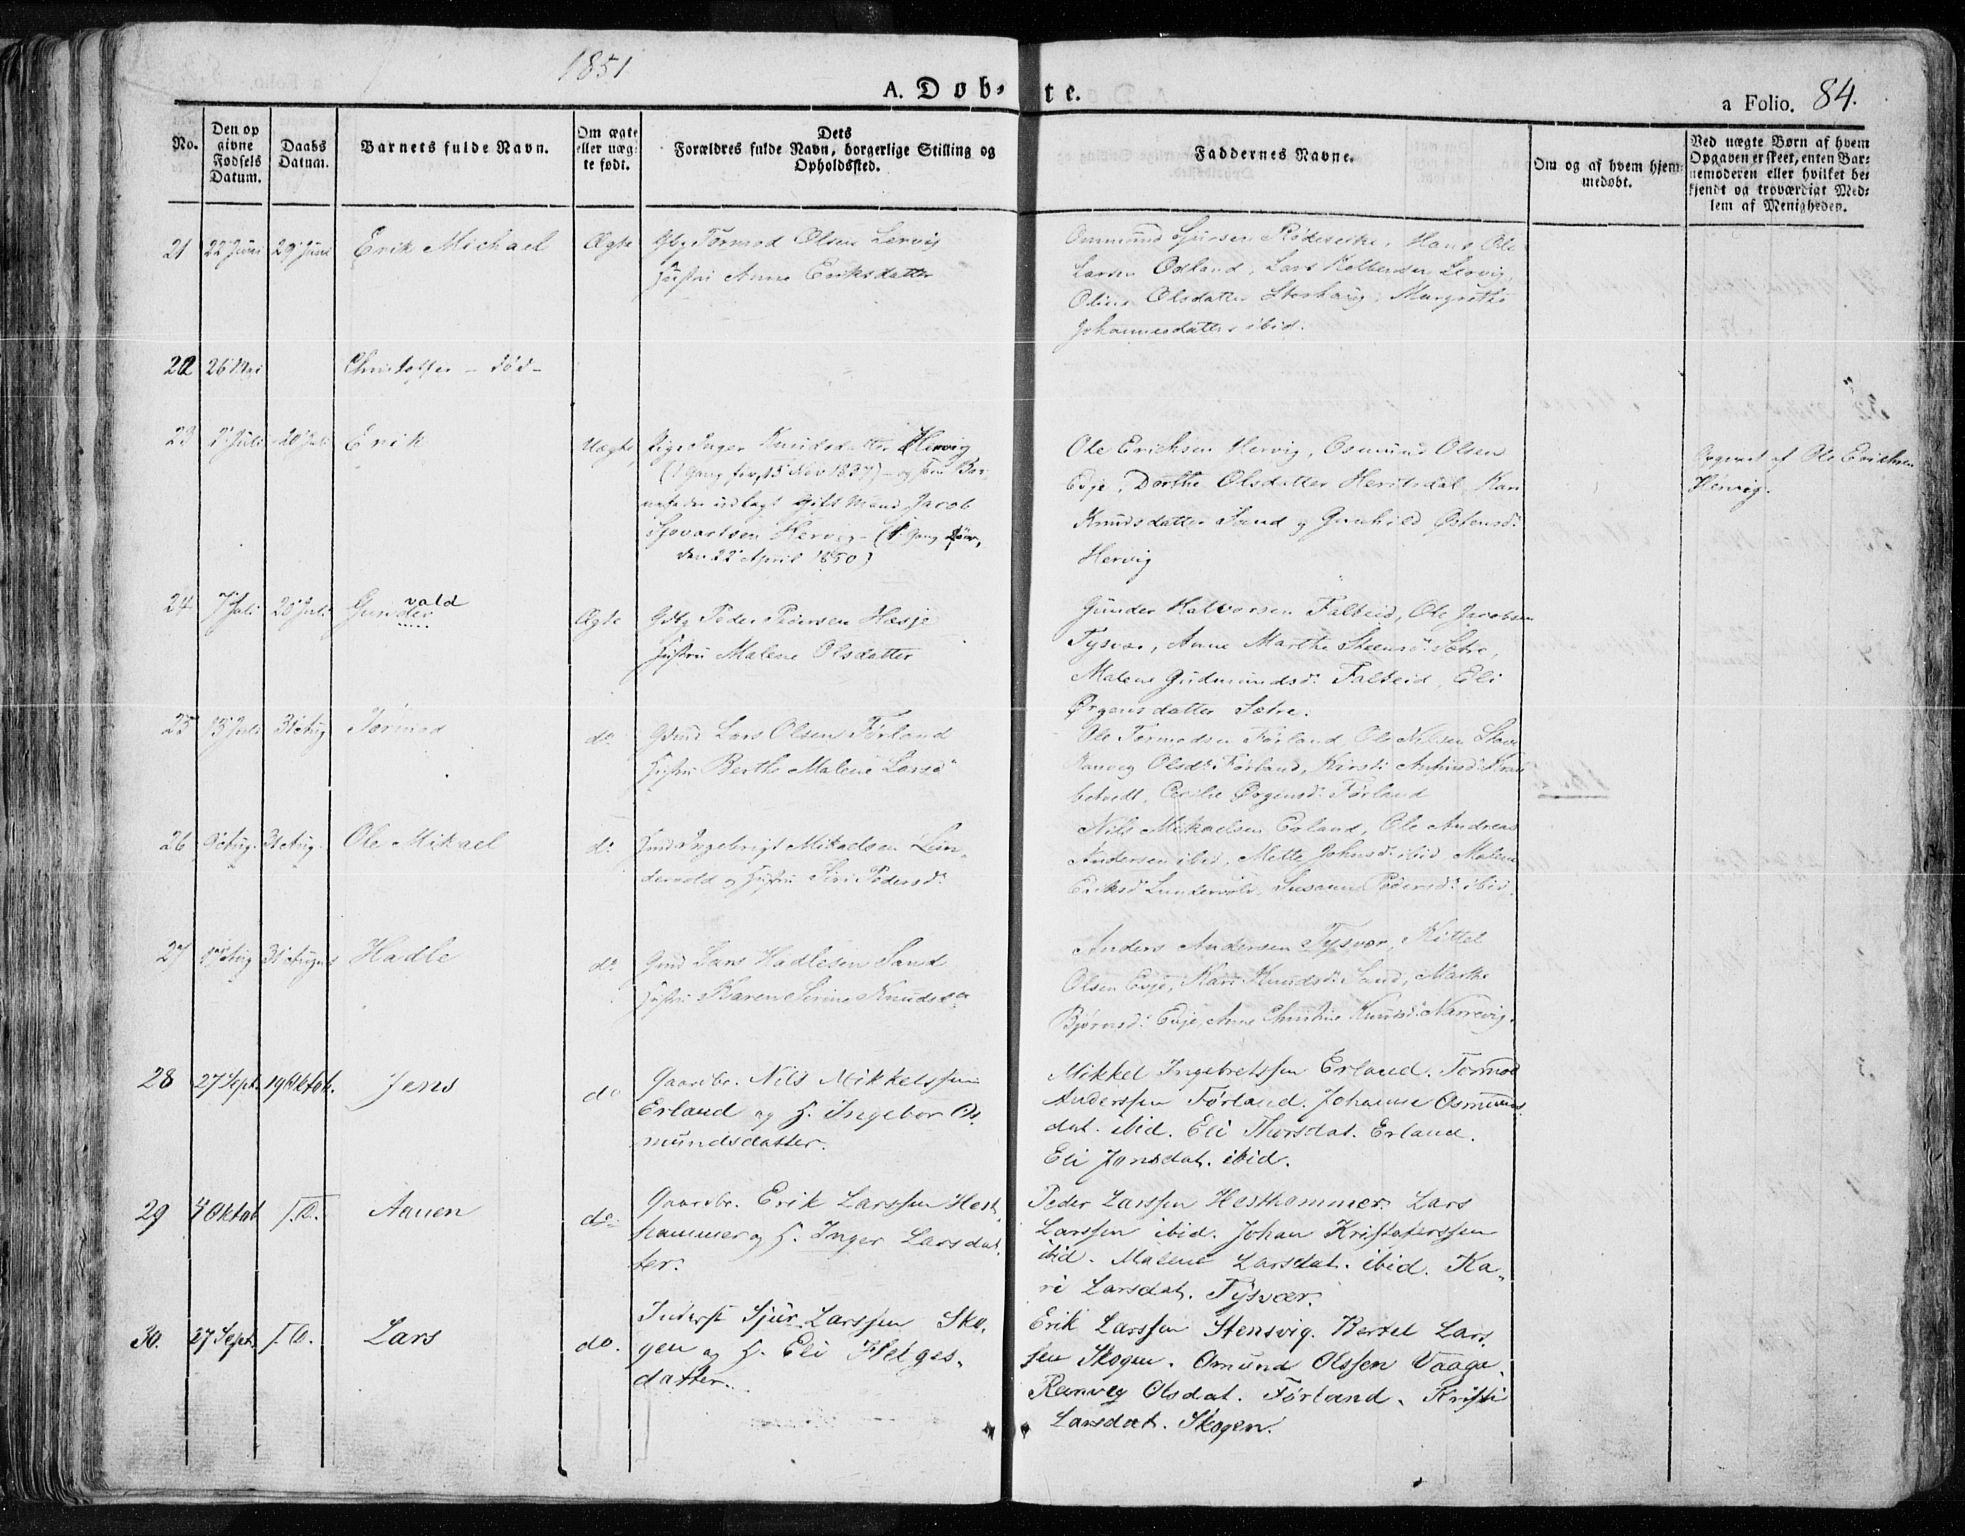 1851
A. Døb- te.
a Folio. 84.
No.
Den op
givne
Fødsels
Datum.
Daabs
Datum.
Barnets fulde Navn.
Om ægte
eller uæg-
te født.
Dets
Forældres fulde Navn, borgerlige Stilling og
Opholdssted.
Faddernes Navne.
Om og af hvem hjem-
medøbt.
Ved uægte Børn af hvem
Opgaven er skeet, enten Bar-
nemoderen eller hvilket be-
kjendt og troværdigt Med-
lem af Menigheden.
21 22 Juni 29 Juni Erik Michael Ægte Tormod Olsen Lervig
Hustru Anne Eriksdatter
Ommund Sjursen Hans Ole
Larsen Odland, Lars Lervig,
Olsdatter Storhaug, Margrethe
Johannesdatter ibid.
22 26 Mai Christoffer - død -
23 Juli 20 Juli Erik Uægte Pige Inger Knudsdatter Hervig
(1 Gang 15 Nov 1837) - og som Bar-
nefader udlagt Gift Mand Jacob
Hervig - (1 Gang
den 22 April 1850)
Ole Ericksen Hervig, Osmund Olsen
Evje, Dorthe Olsdatter Kari
Knudsdatter Sand og Gunhild Østensd.
Hervig
Opgivet af Ole Erichsen
Hervig.
24 7 Juli 20 Juli Gunder vald Ægte Peder Hesje
Hustru Malene Olsdatter
Gunder Halvorsen Falkeid, Ole Jacobsen
Tysvær, Anne Marthe Steensd. Sætre,
Malene Gudmundsd. Falkeid, Eli
Ørgensdatter Sætre.
25 13 Juli 31 Aug Tormod do Lars Olsen Førland
Hustru Berthe Malene Larsd.
Ole Tormodsen Førland, Ole Nilsen
Ranveg Olsd. Førland, Kirsti
Cecilie Ørgensd. Førland
26 Aug. 31 Aug. Ole Mikael do Ingebrigt Mikaelsen Lun-
dervold og Hustru Siri Pedersd.
Nils Mikaelsen Erland, Ole Andreas
Andersen ibid, Mette Johnsd. ibid, Malene
Eriksd. Lundervold, Susanne Pedersd. ibid.
27 Aug 31 August Hadle do. Lars Hadlesen Sand
Hustru Karen Serine Knudsd.
Anders Andersen Tysvær, Kittel
Olsen Evje, Kari Knudsd. Sand, Marthe
Bjørnsd. Evje, Anne Christine Knudsd. Narrevig.
28 27 Sept. 19 Oktob. Jens do Gaardbr. Nils Mikkelssen
Erland og H. Ingebor Os-
mundsdatter.
Mikkel Ingebretssen Erland. Tormod
Anderssen Førland. Johanne Osmunds
dat. ibid. Eli Thorsdat. Erland.
Eli Jonsdat. ibid.
29 4 Oktob s.D. Aanen do. Gaardbr. Erik Larssen Hest-
hammer og H. Inger Larsdat-
ter.
Peder Larssen Hesthammer. Lars
Larssen ibid. Johan Kristoferssen
ibid. Malene Larsdat. ibid. Ka-
ri Larsdat. Tysvær.
30. 27 Sept. s.D. Lars do. Inderst Sjur Larssen Sko-
gen og H. Eli Helges-
datter.
Erik Larssen Stensvig. Bertel Lars-
sen Skogen. Omund Olssen Vaage.
Ranveg Olsdat. Førland. Kristi
Larsdat. Skogen.